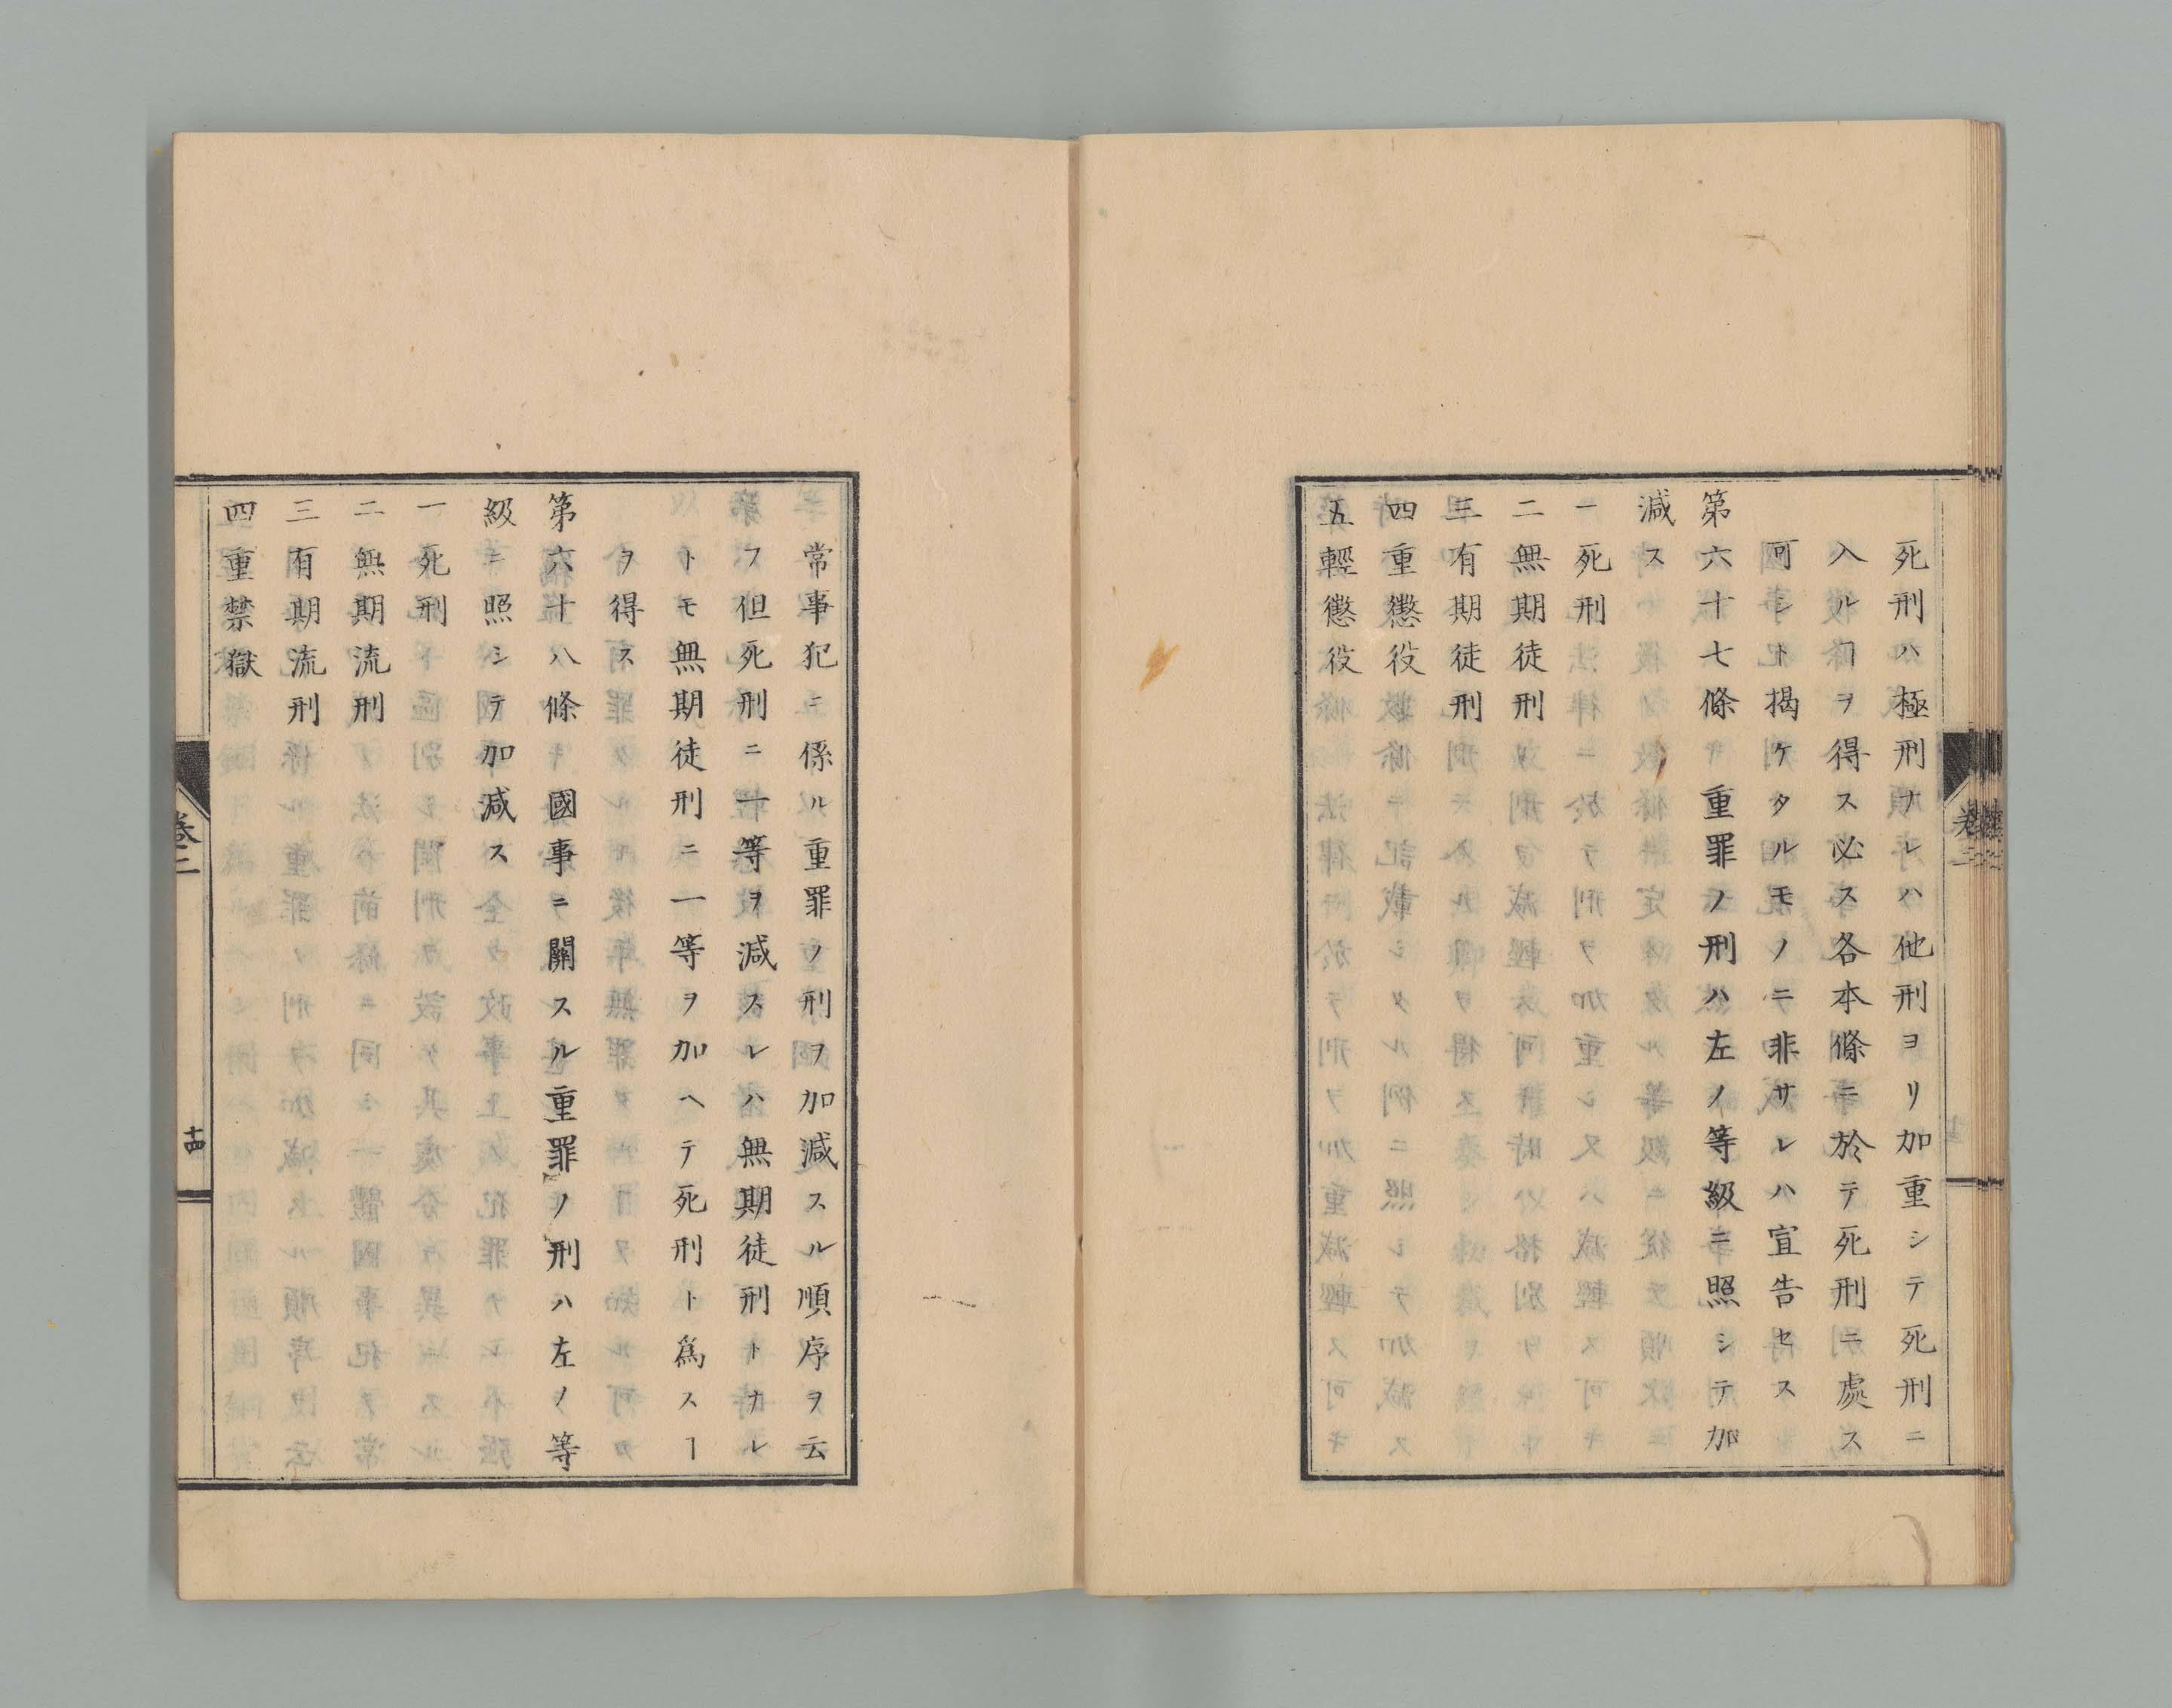 死刑ハ極刑ナレハ他刑ヨリ加重シテ死刑ニ
入ルヿヲ得ス必ス各本條ニ於テ死刑ニ處ス
可シト揭ケタルモノニ非サレハ宣告セス
第六十七條 重罪ノ刑ハ左ノ等級ニ照シテ加
減ス
一 死刑
二 無期徒刑
三 有期徒刑
四 重懲役
五 輕懲役
常事犯ニ係ル重罪ノ刑ヲ加減スル順序ヲ云
フ但死刑ニ一等ヲ減スレハ無期徒刑トナレ
トモ無期徒刑ニ一等ヲ加ヘテ死刑ト爲スヿ
ヲ得ス
第六十八條 國事ニ關スル重罪ノ刑ハ左ノ等
級ニ照シテ加減ス
一 死刑
二 無期流刑
三 有期流刑
四 重禁獄
卷二
十四